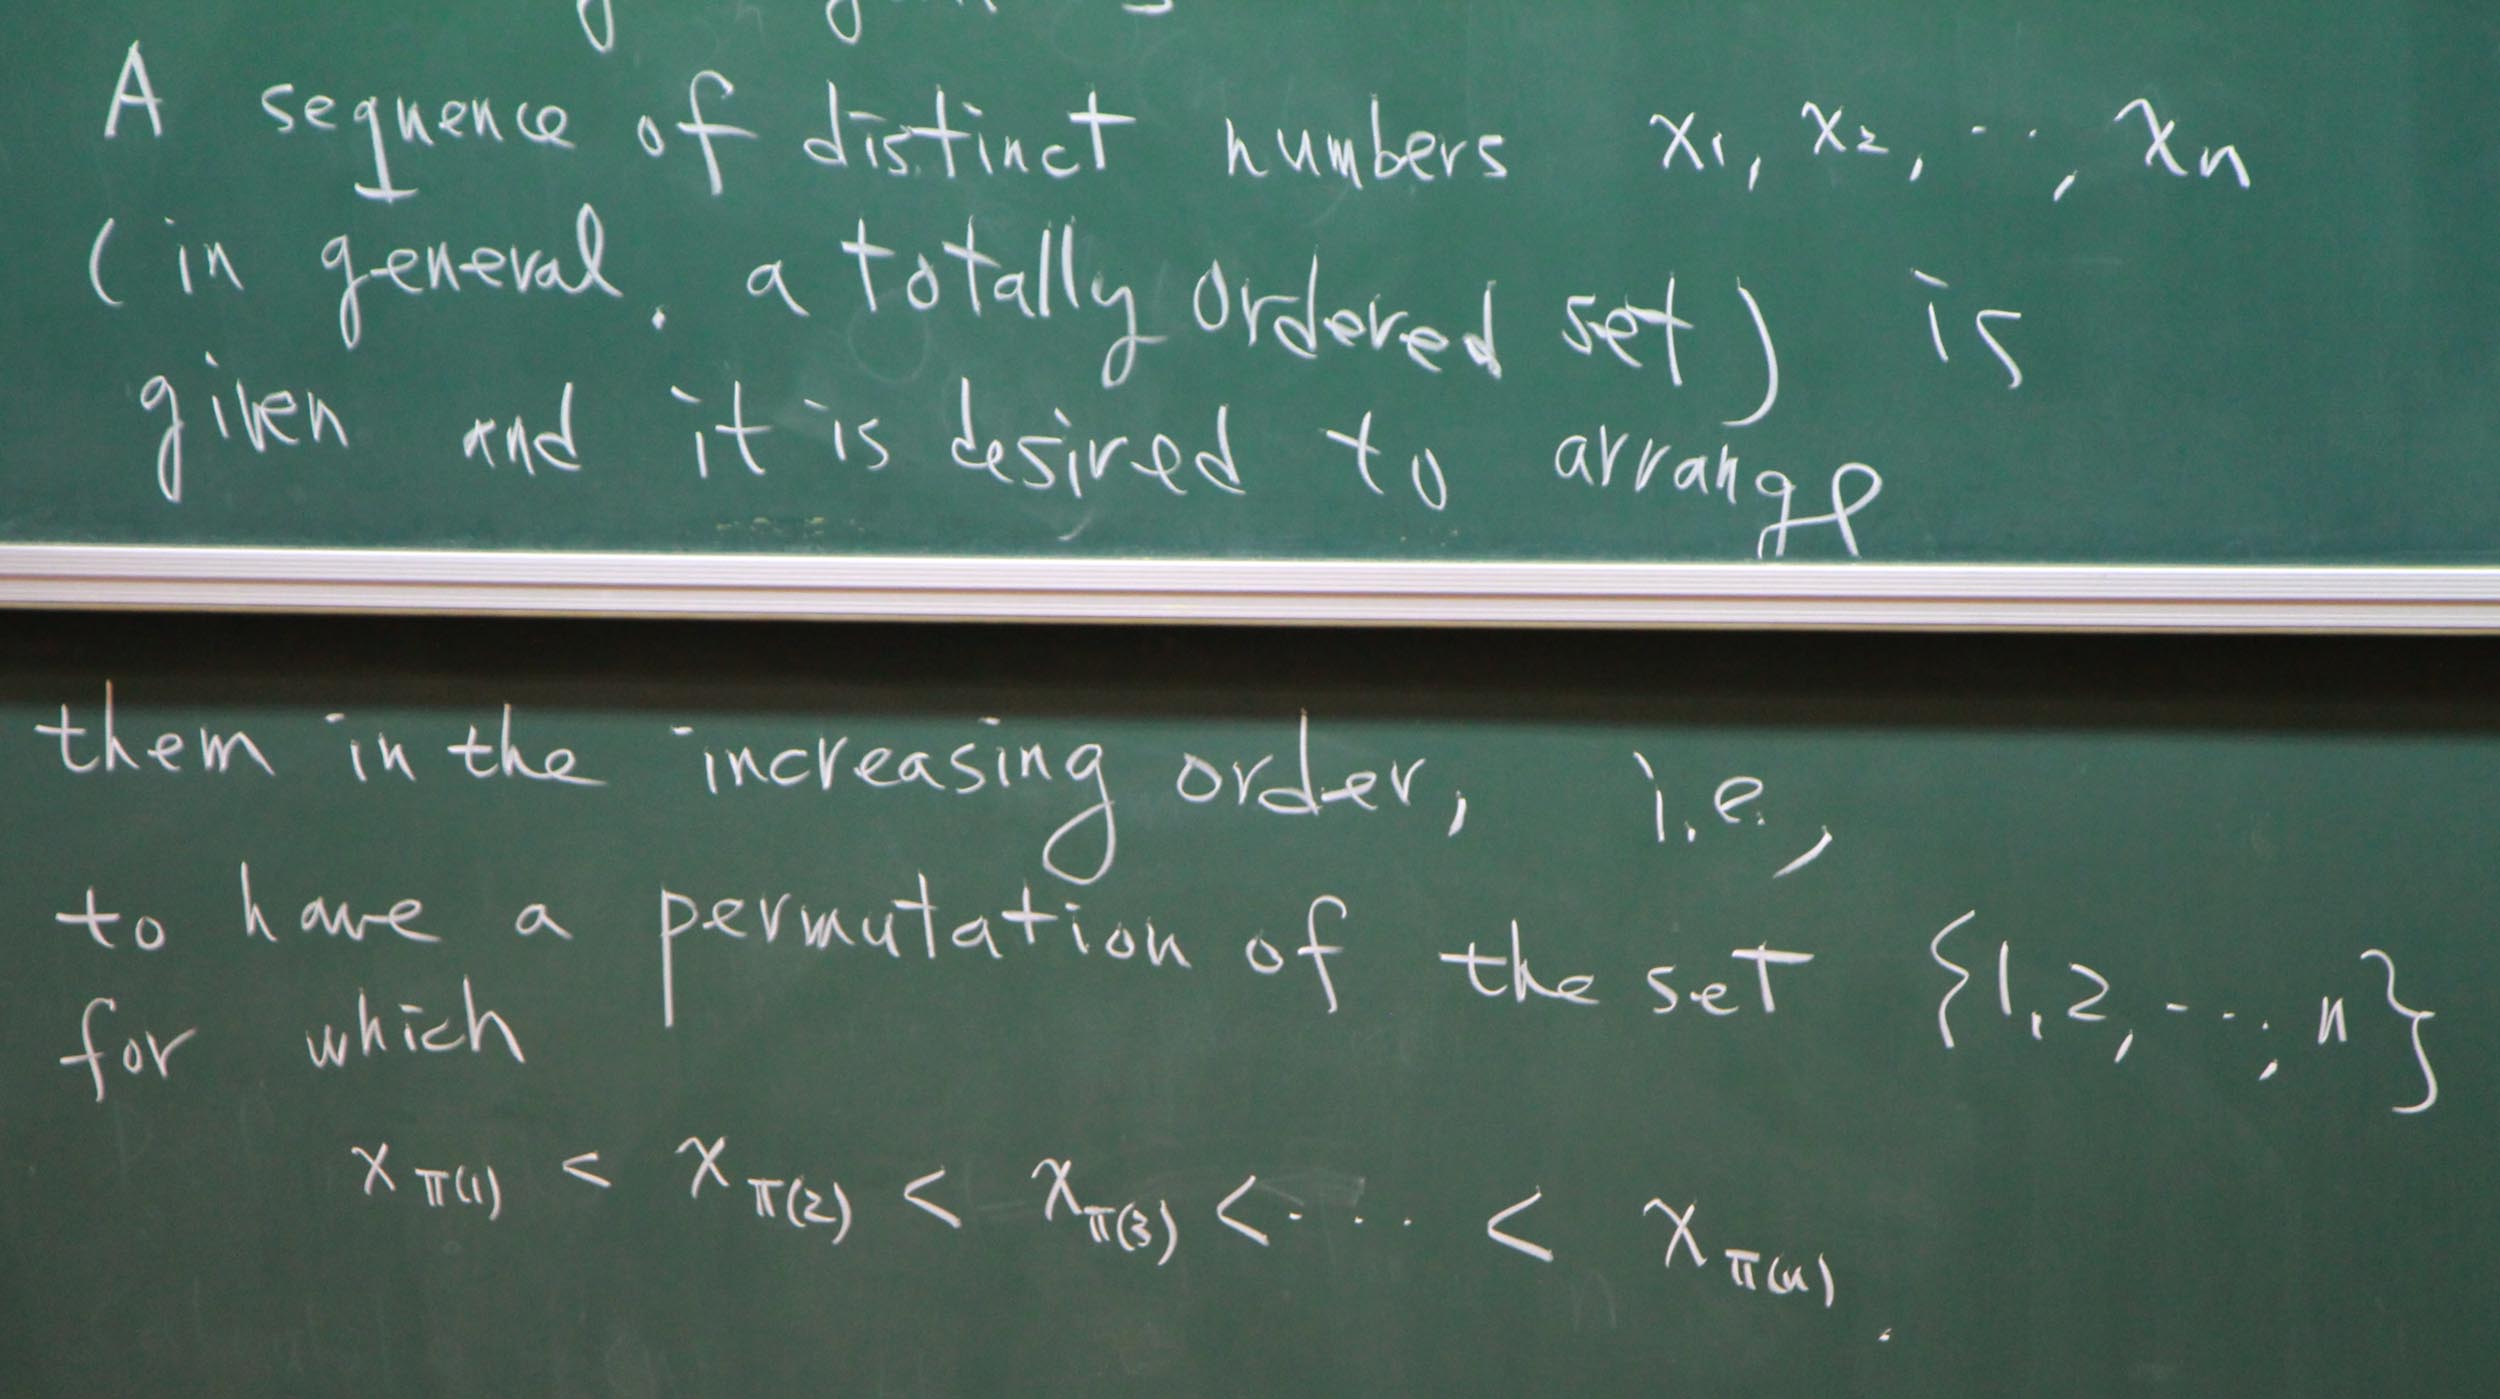 A sequence of distinct numbers x₁, x₂, ..., xₙ
(in general, a totally ordered set) is
given and it is desired to arrange
them in the increasing order, i.e.,
to have a permutation of the set {1, 2, ..., n}
for which
x_π(1) < x_π(2) < x_π(3) < ... < x_π(n).